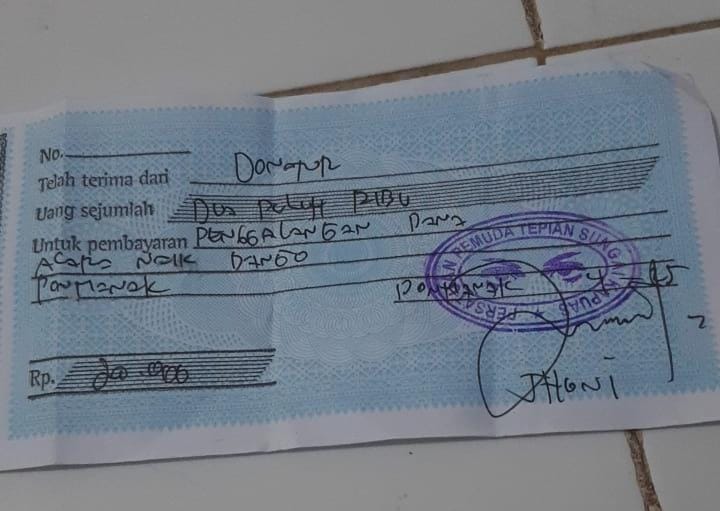 No.
Telah terima dari Donatur
Uang sejumlah Dua Puluh Ribu
Untuk pembayaran PENGGALANGAN DANA
Acara Naik DANGO
Pontianak
Pontianak
PERSATUAN PEMUDA TEPIAN SUNGAI KAPUAS
Rp. 20.000
JHONI